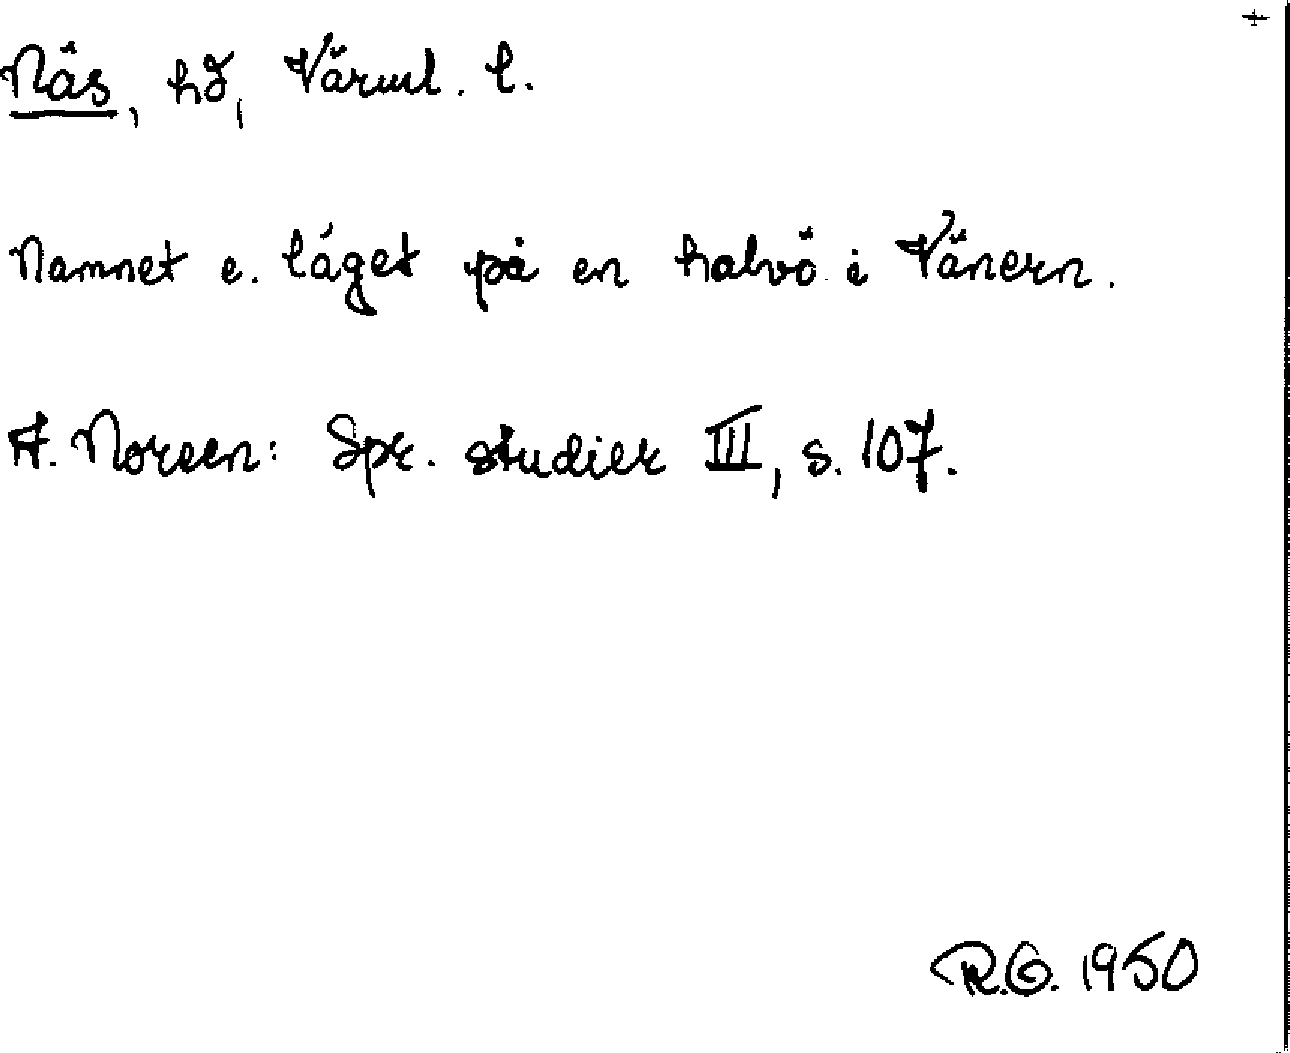 Näs, hd, Värml. l.
Namnet e. läget på en halvö i Vänern.
A. Noreen: Spr. studier III, s. 107.
R.G. 1950